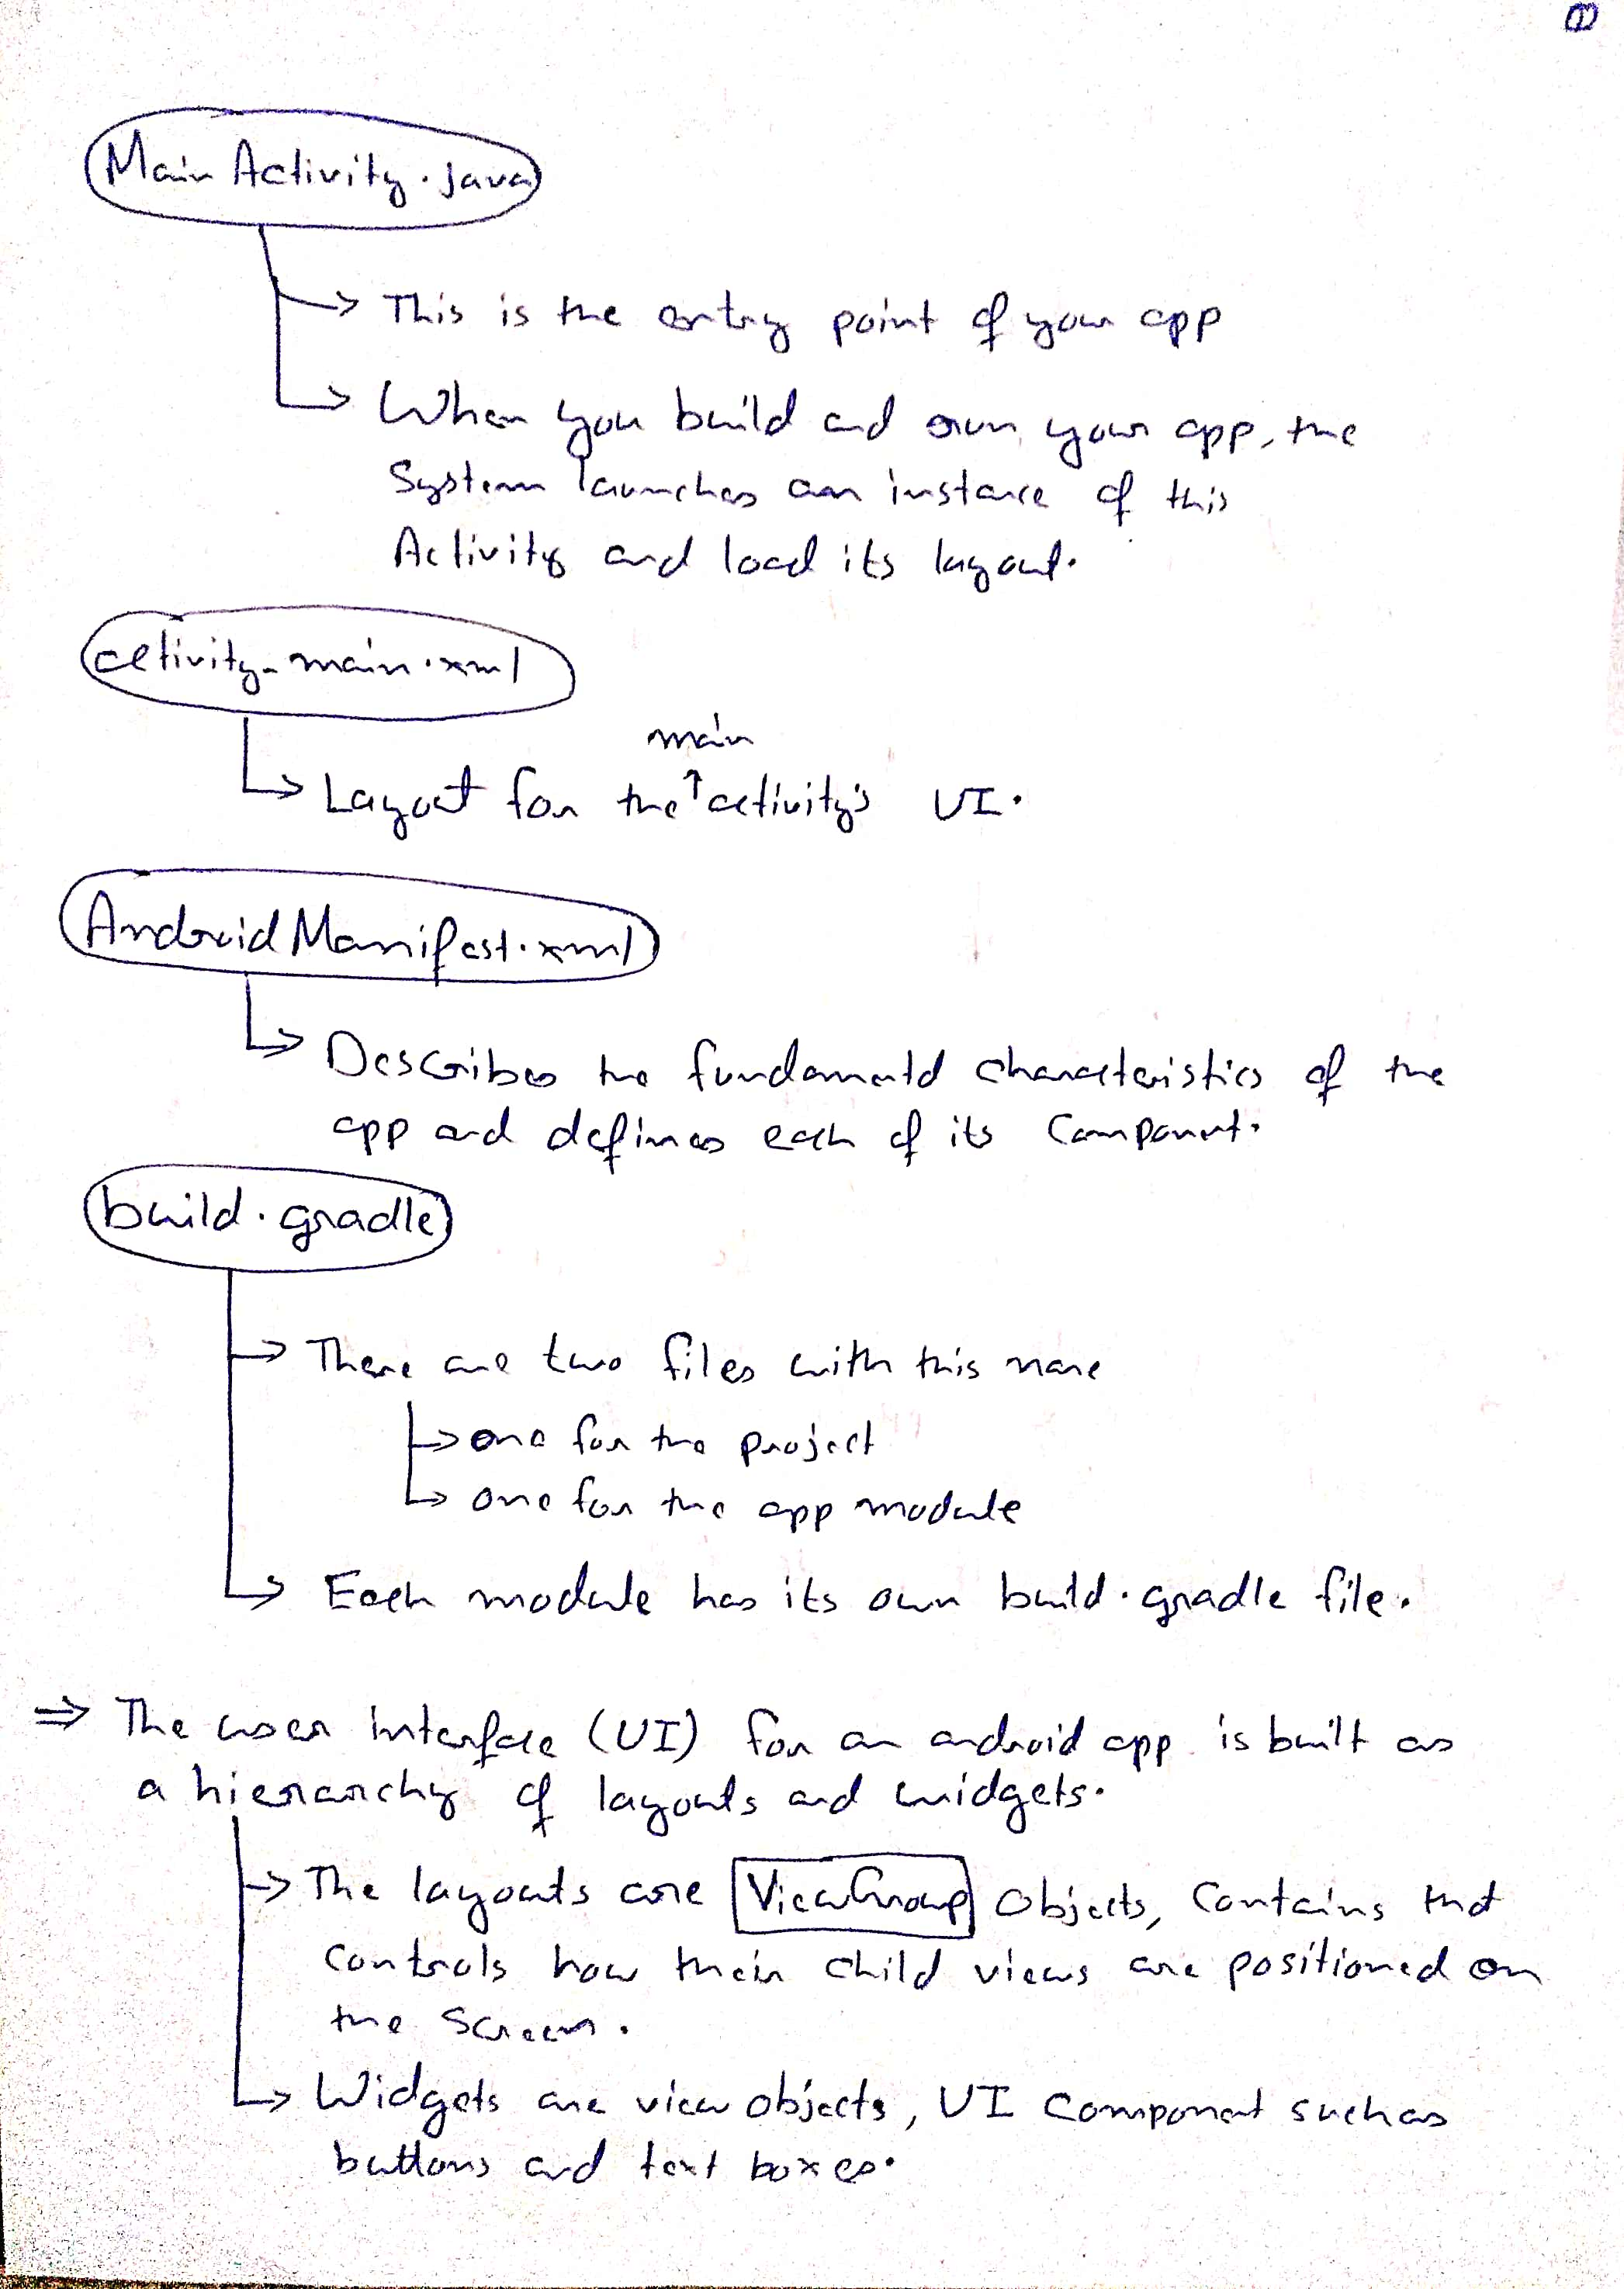 ①
MainActivity.java
→ This is the entry point of your app
→ When you build and run your app, the
System launches an instance of this
Activity and load its layout.
activity_main.xml
main
→ Layout for the ↑ activity's UI.
AndroidManifest.xml
→ Describes the fundamental characteristics of the
app and defines each of its Component.
build.gradle
→ There are two files with this name
→ one for the project
→ one for the app module
→ Each module has its own build.gradle file.
⇒ The user interface (UI) for an android app is built as
a hierarchy of layouts and widgets.
→ The layouts are ViewGroup Objects, Contains that
controls how their child views are positioned on
the Screen.
→ Widgets are view objects, UI Component such as
buttons and text boxes.